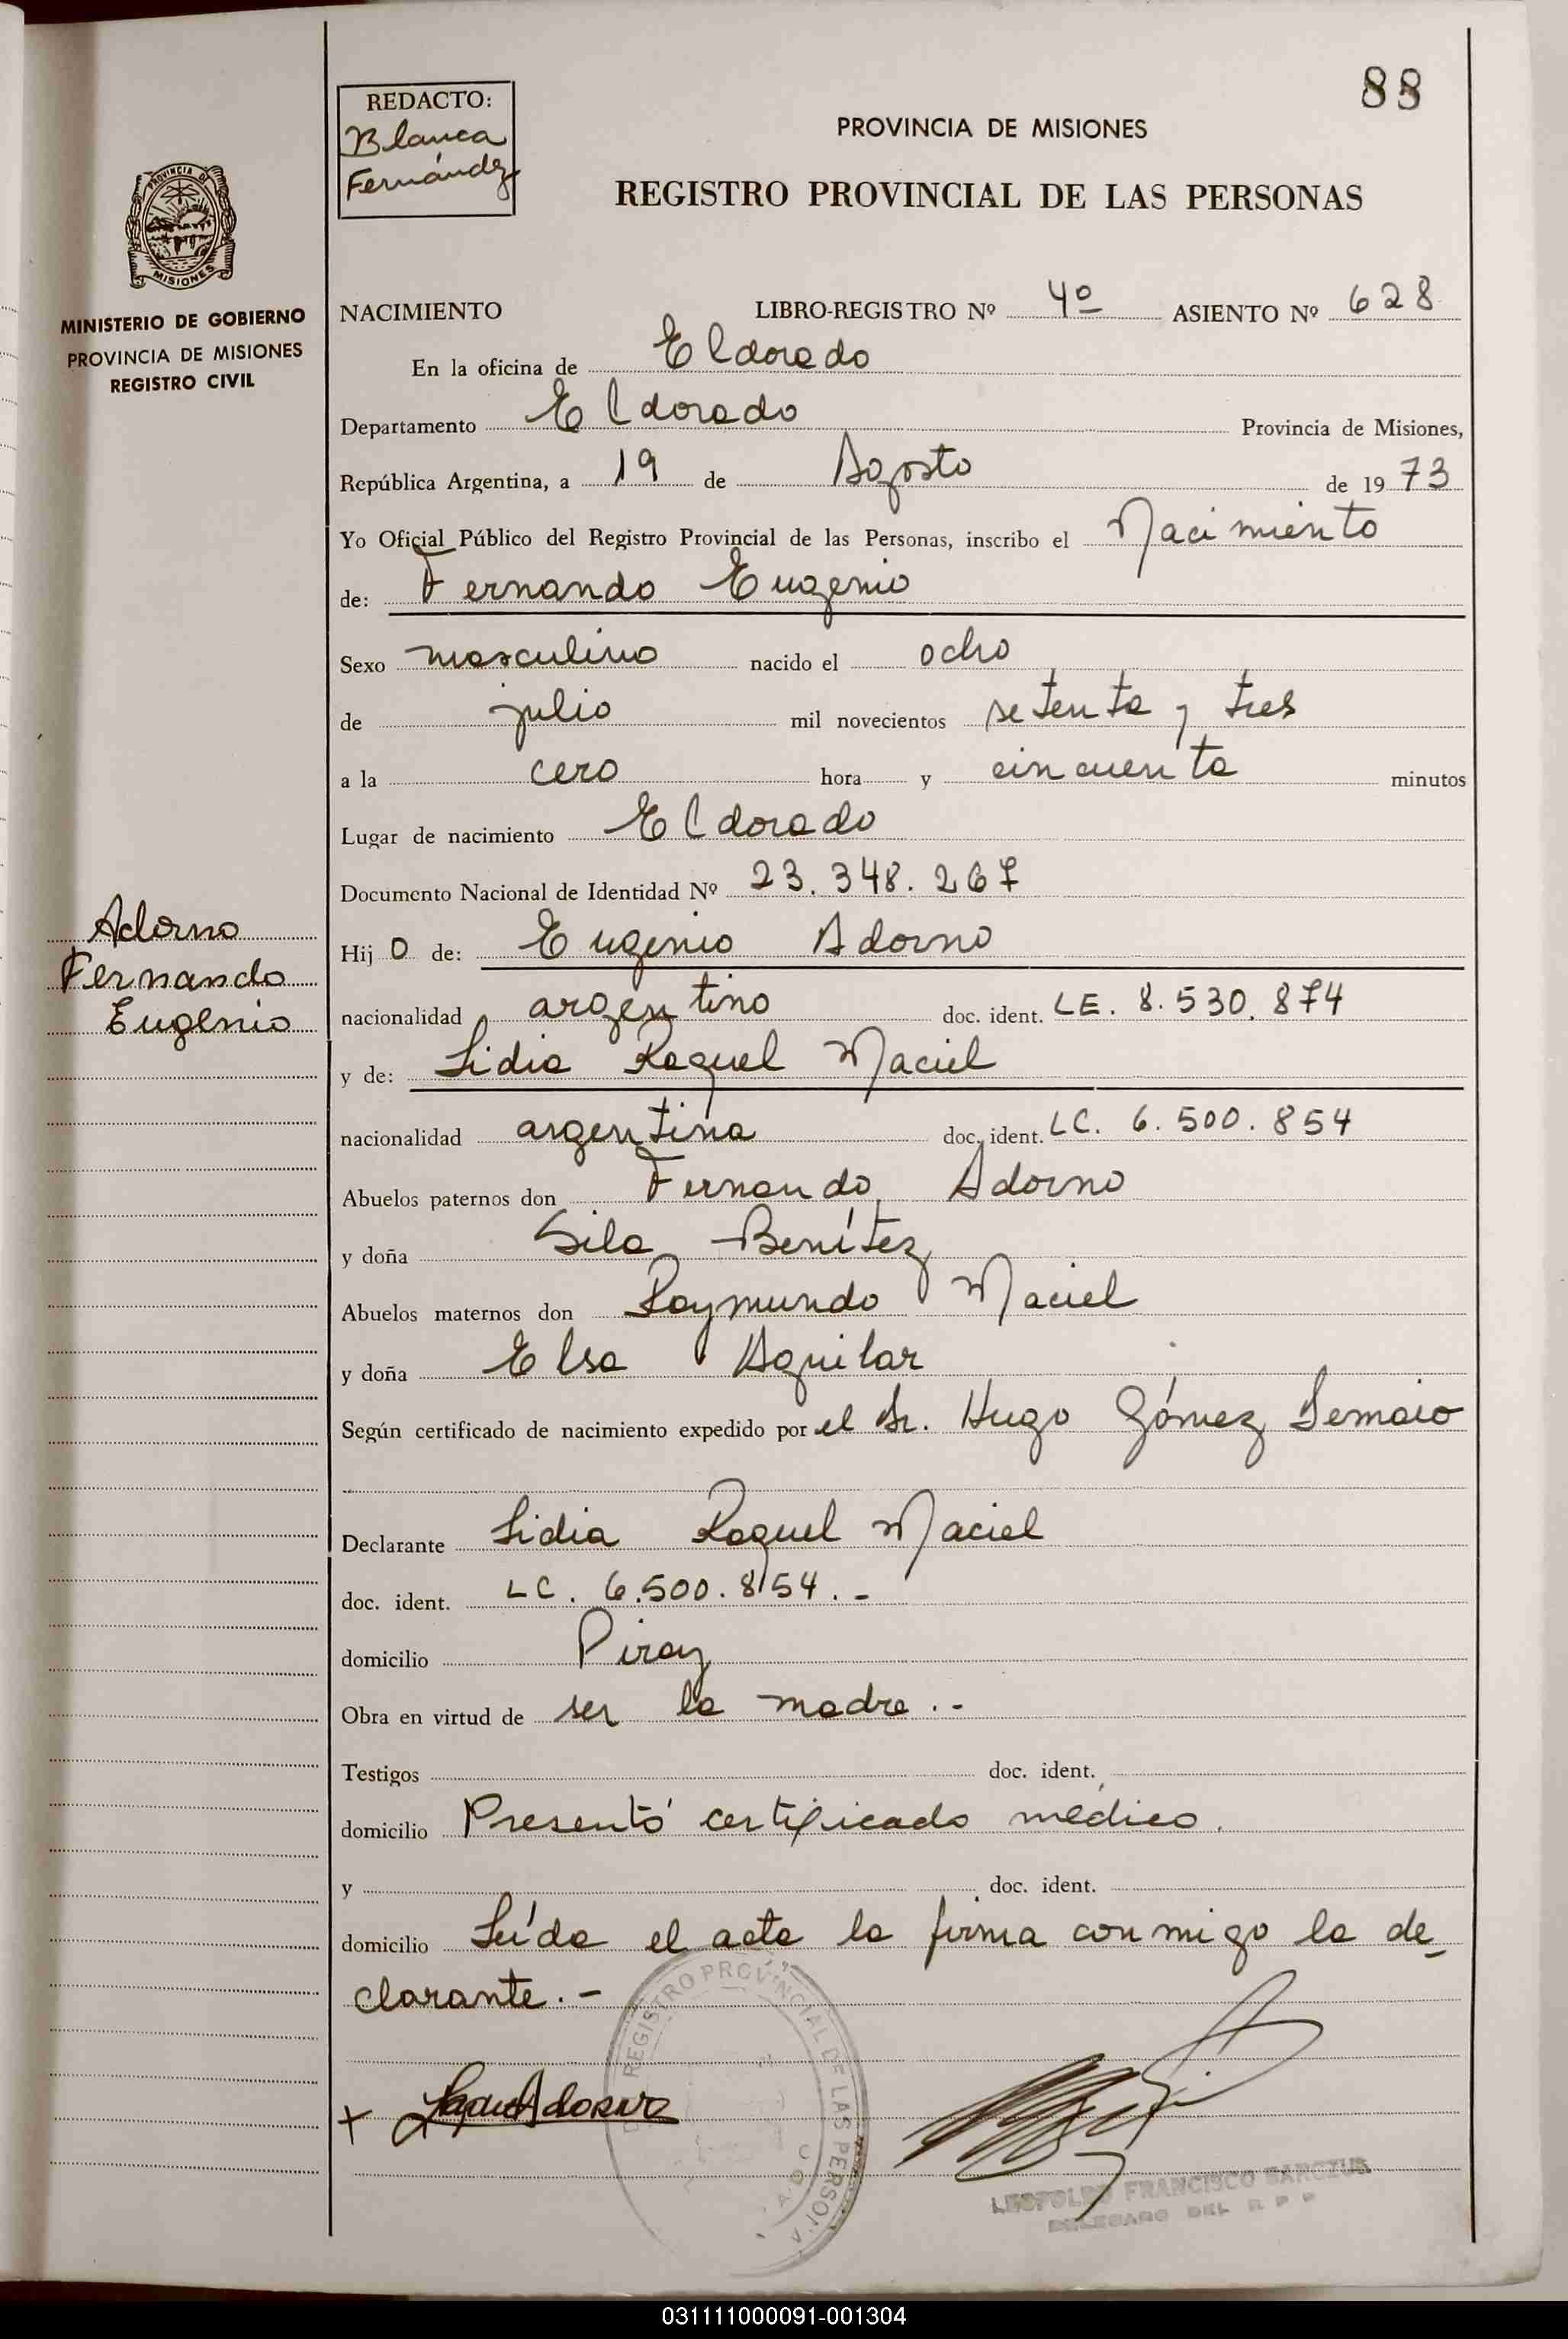 88
REDACTO:
Blanca
Fernández
PROVINCIA DE MISIONES
REGISTRO PROVINCIAL DE LAS PERSONAS
PROVINCIA DE
MISIONES
MINISTERIO DE GOBIERNO
PROVINCIA DE MISIONES
REGISTRO CIVIL
NACIMIENTO LIBRO-REGISTRO Nº 4º ASIENTO Nº 628
En la oficina de Eldorado
Departamento Eldorado Provincia de Misiones,
República Argentina, a 19 de Agosto de 1973
Yo Oficial Público del Registro Provincial de las Personas, inscribo el Nacimiento
de: Fernando Eugenio
Sexo masculino nacido el ocho
de julio mil novecientos setenta y tres
a la cero hora y cincuenta minutos
Lugar de nacimiento Eldorado
Documento Nacional de Identidad Nº 23.348.267
Adorno
Fernando
Eugenio
Hijo de: Eugenio Adorno
nacionalidad argentino doc. ident. LE. 8.530.874
y de: Lidia Raquel Maciel
nacionalidad argentina doc. ident. LC. 6.500.854
Abuelos paternos don Fernando Adorno
y doña Sila Benítez
Abuelos maternos don Raymundo Maciel
y doña Elsa Aguilar
Según certificado de nacimiento expedido por el Dr. Hugo Gómez Demaio
Declarante Lidia Raquel Maciel
doc. ident. LC. 6.500.854.-
domicilio Piray
Obra en virtud de ser la madre.-
Testigos doc. ident.
domicilio Presentó certificado médico.
y doc. ident.
domicilio Leída el acta la firma conmigo la de
clarante.-
REGISTRO PROVINCIAL DE LAS PERSONA
LEOPOLDO FRANCISCO
DELEGADO DEL R P P
031111000091-001304